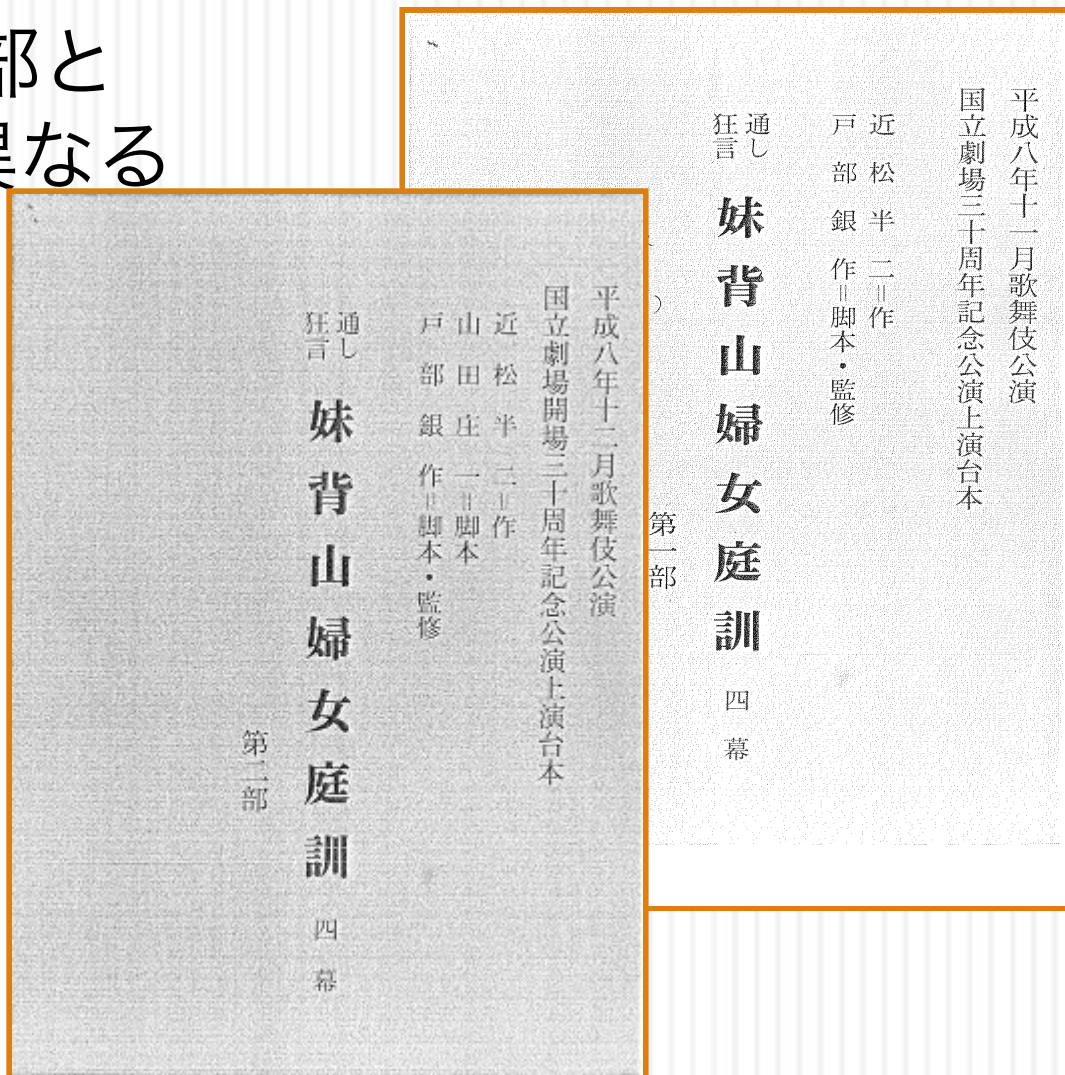 部と
異なる
平成八年十一月歌舞伎公演
国立劇場三十周年記念公演上演台本
近松半二=作
戸部銀作=脚本・監修
通し
狂言
妹背山婦女庭訓 四幕
第一部
平成八年十二月歌舞伎公演
国立劇場開場三十周年記念公演上演台本
近松半二=作
山田庄一=脚本
戸部銀作=脚本・監修
通し
狂言
妹背山婦女庭訓 四幕
第二部